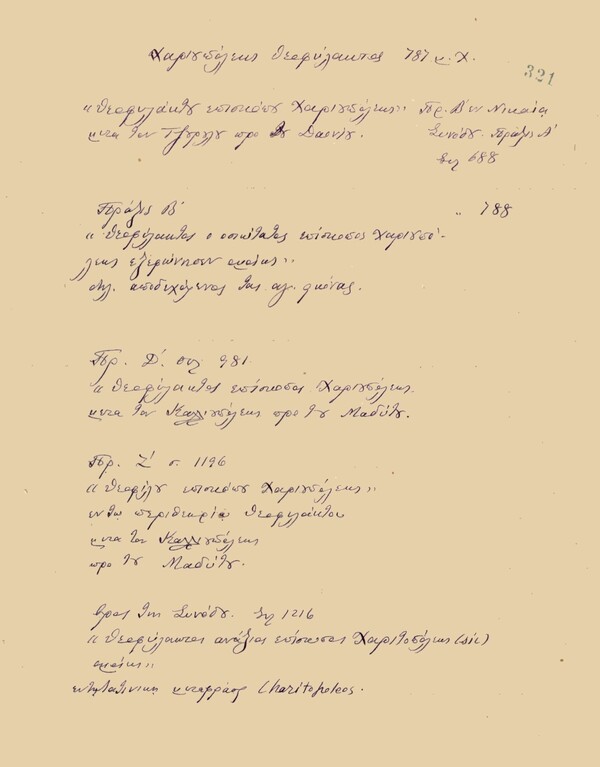 Χαριουπόλεως Θεοφύλακτος 787 μ.Χ.
321
"Θεοφυλάκτου επισκόπου Χαριουπόλεως" Πρ. Β' εν Νικαία
μετα τον Τζουρλου προ του Δαονίου. Συνόδου Πράξις Α'
σελ 688
Πράξις Β' " 788
"Θεοφύλακτος ο οσιώτατος επίσκοπος Χαριουπό-
λεως εξεφώνησεν ομοίως"
δηλ. αποδεχόμενος τας αγ. εικόνας.
Πρ. Δ'. σελ 981
"Θεοφύλακτος επίσκοπος Χαριουπόλεως.
μετα τον Καλλιουπόλεως προ του Μαδύτου.
Πρ. Ζ' σ. 1196
"Θεοφίλου επισκόπου Χαριουπόλεως"
εν τω περιθωρίω Θεοφυλάκτου
μετα τον Καλλιουπόλεως
προ του Μαδύτου.
όρος της Συνόδου. σελ 1216
"Θεοφύλακτος ανάξιος επίσκοπος Χαριτοπόλεως (sic)
ομοίως"
εν τη λατινικη μεταφράσει Charitopoleos.